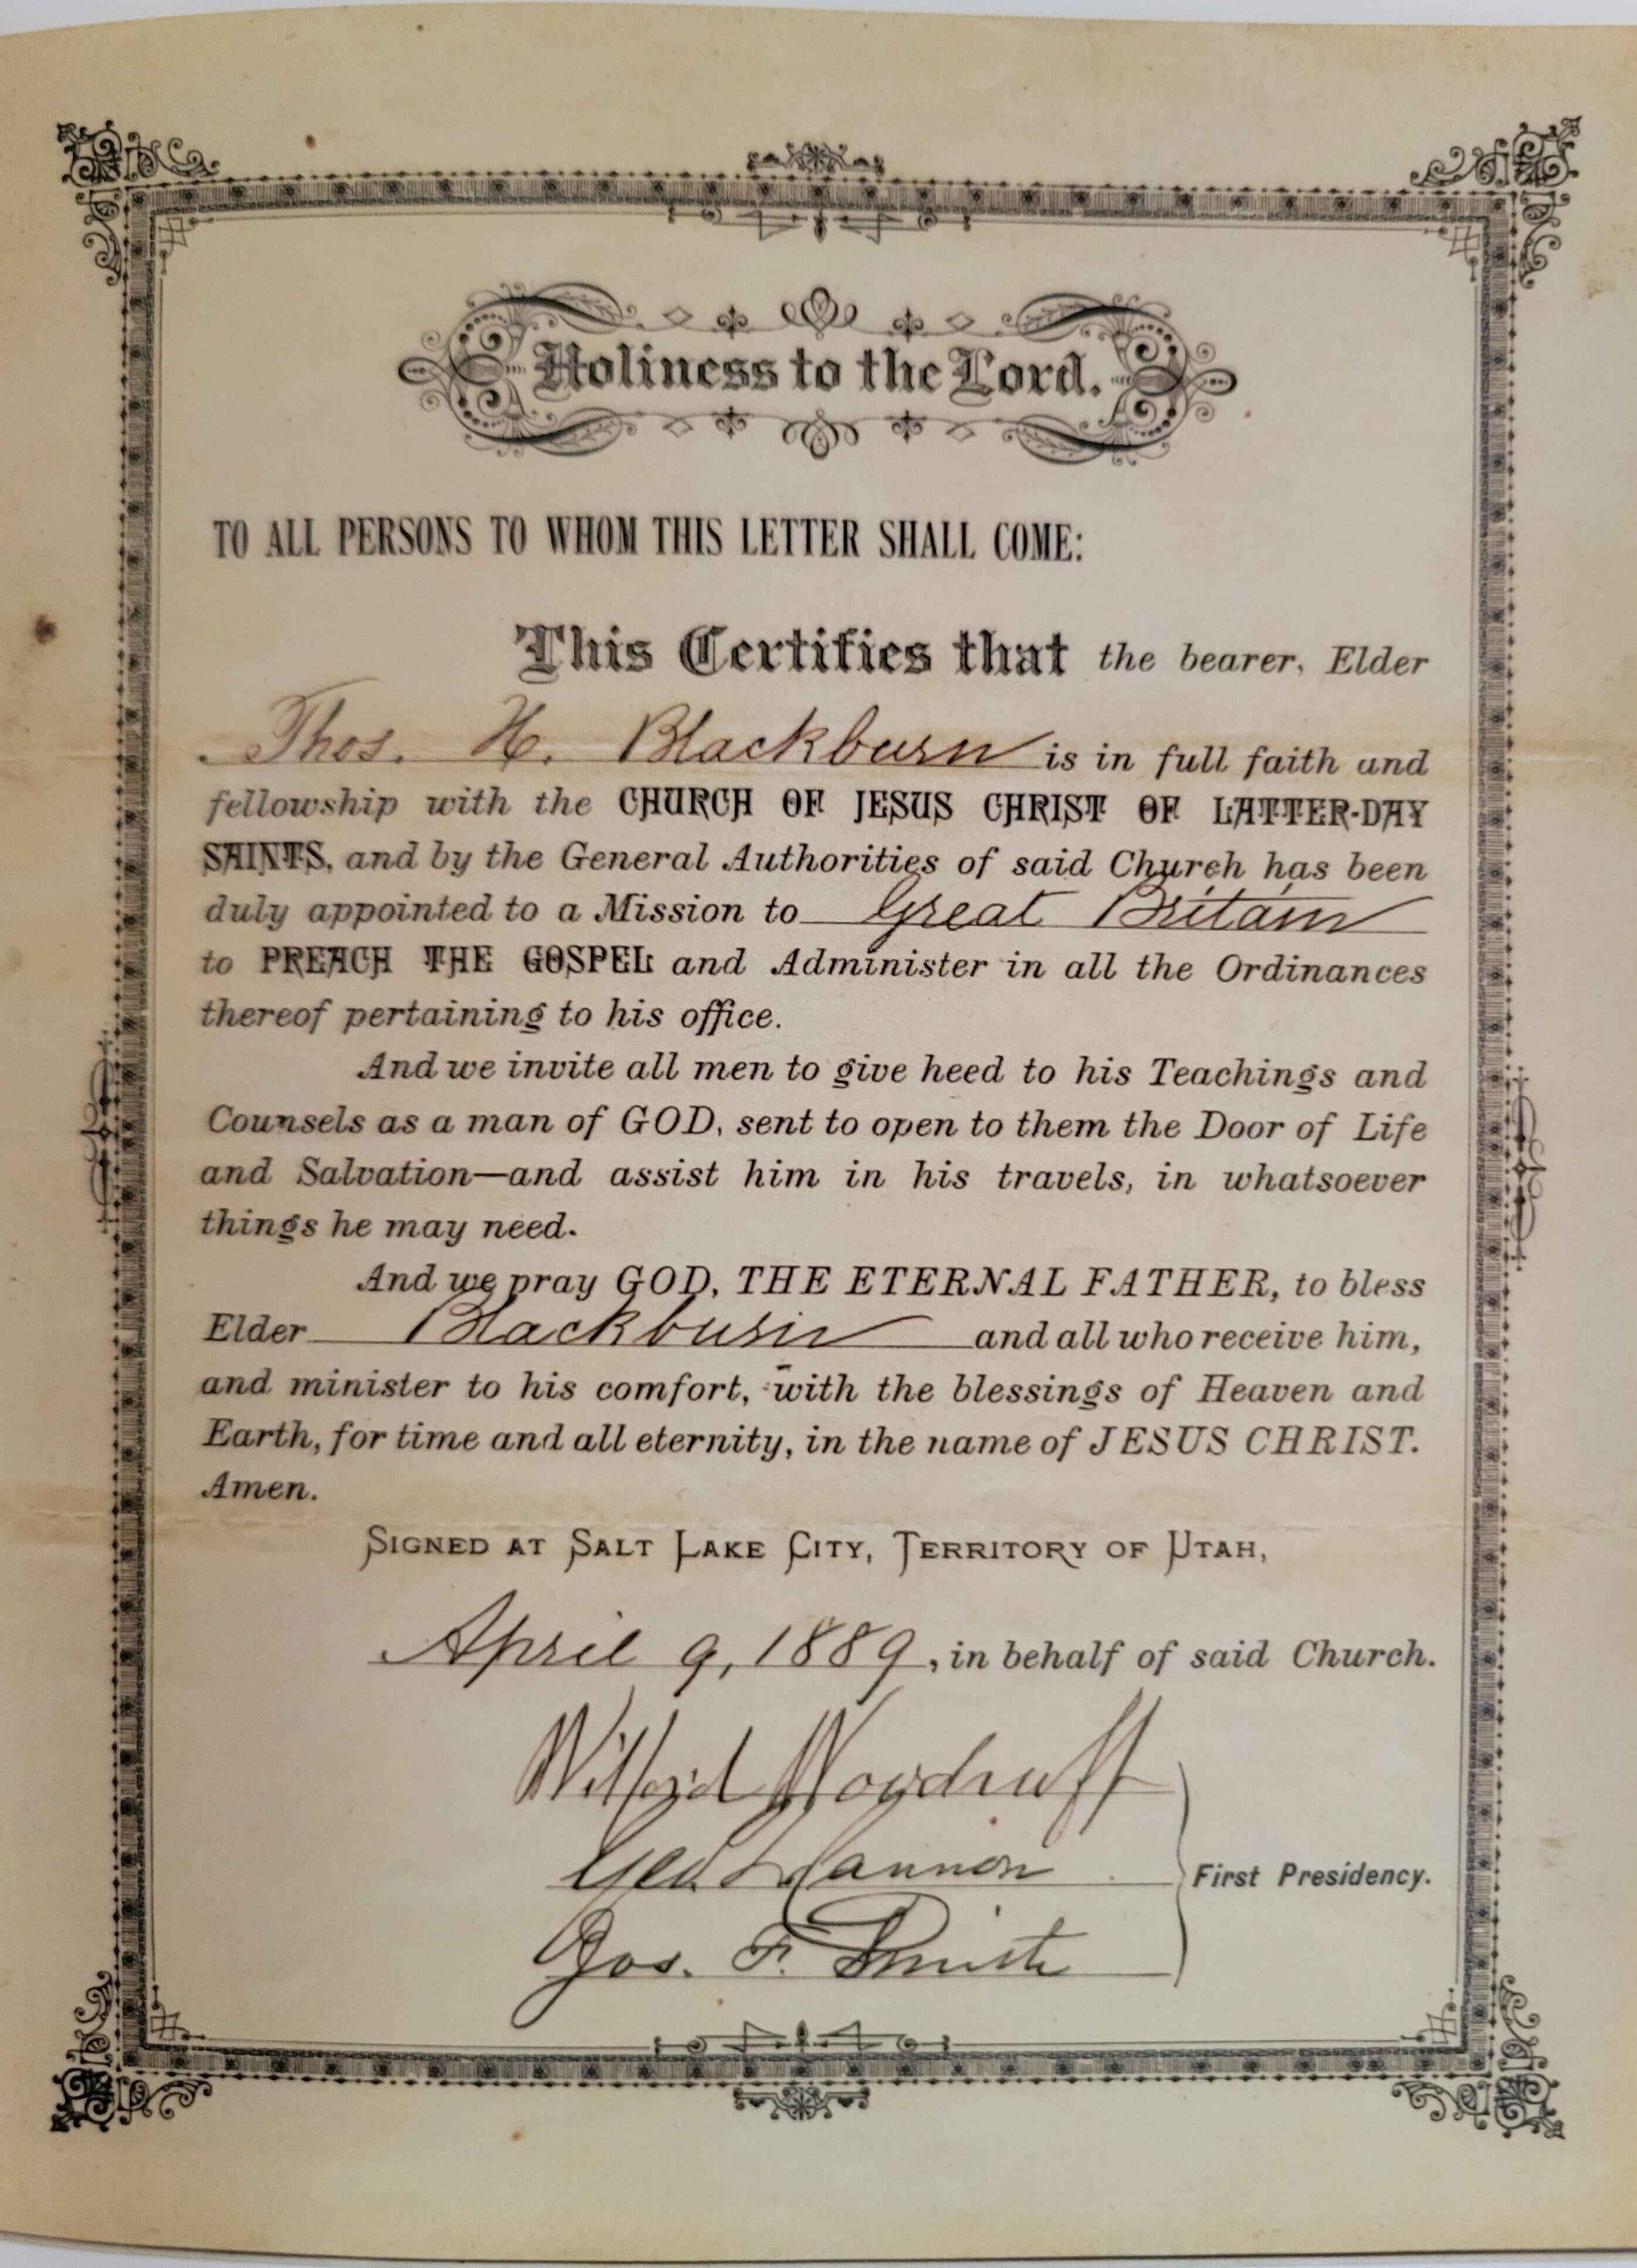 Holiness to the Lord.
TO ALL PERSONS TO WHOM THIS LETTER SHALL COME:
This Certifies that the bearer, Elder
Thos. H. Blackburn is in full faith and
fellowship with the CHURCH OF JESUS CHRIST OF LATTER-DAY
SAINTS, and by the General Authorities of said Church has been
duly appointed to a Mission to Great Britain
to PREACH THE GOSPEL and Administer in all the Ordinances
thereof pertaining to his office.
And we invite all men to give heed to his Teachings and
Counsels as a man of GOD, sent to open to them the Door of Life
and Salvation—and assist him in his travels, in whatsoever
things he may need.
And we pray GOD, THE ETERNAL FATHER, to bless
Elder Blackburn and all who receive him,
and minister to his comfort, with the blessings of Heaven and
Earth, for time and all eternity, in the name of JESUS CHRIST.
Amen.
SIGNED AT SALT LAKE CITY, TERRITORY OF UTAH,
April 9, 1889, in behalf of said Church.
Wilford Woodruff
Geo. Q. Cannon
First Presidency.
Jos. F. Smith